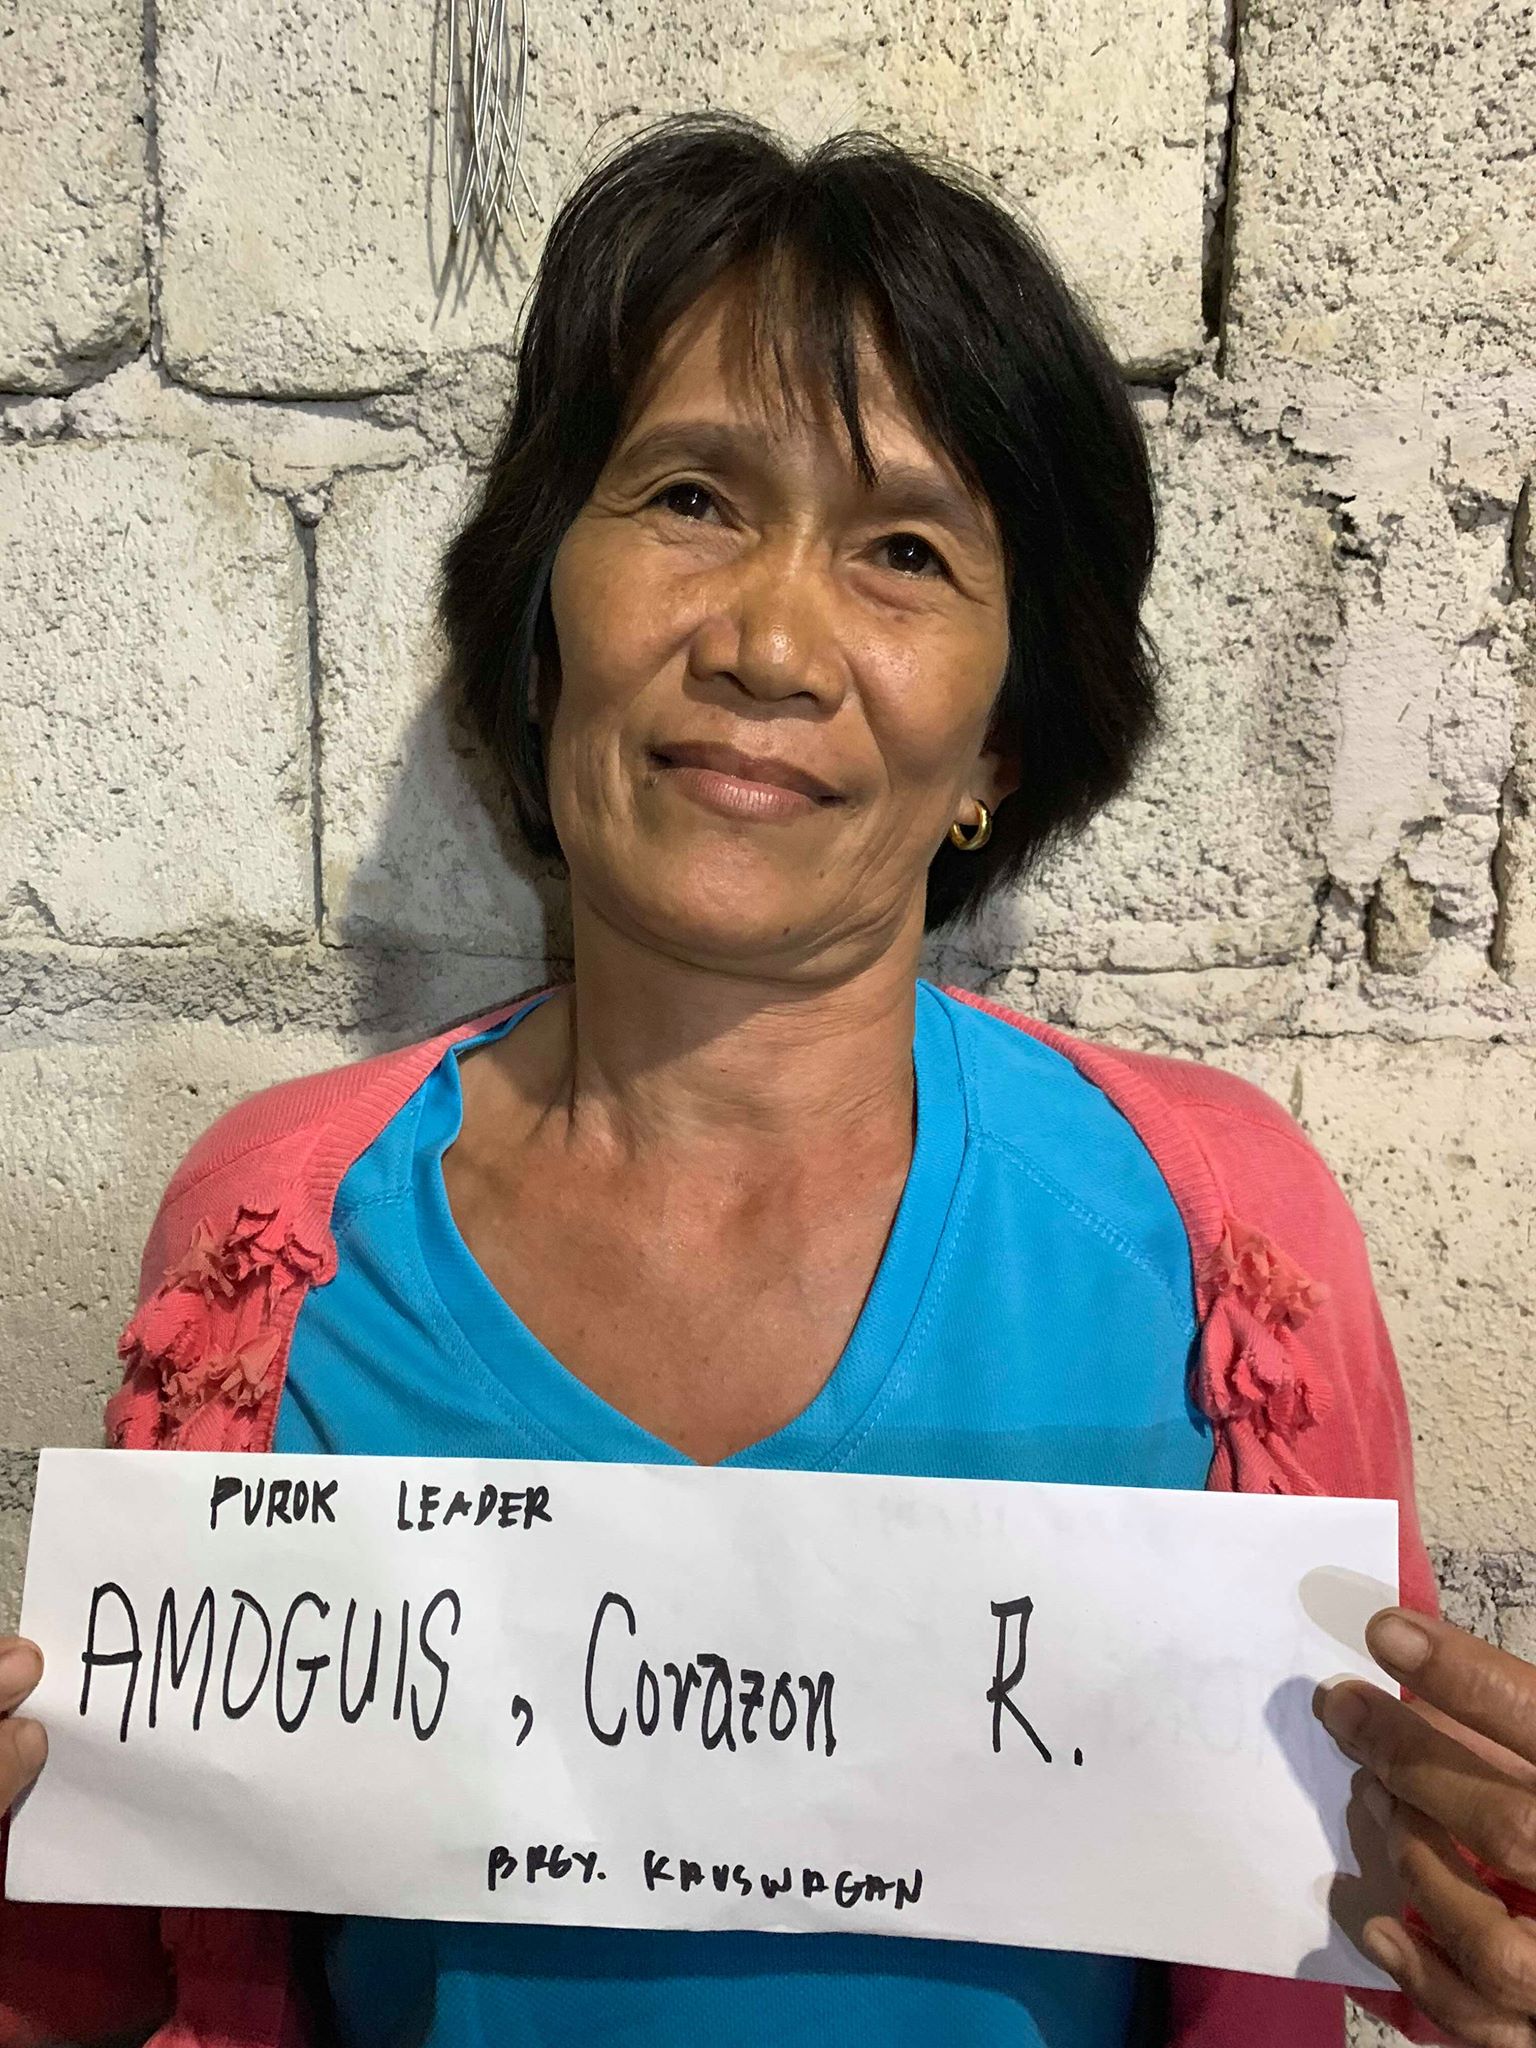 PUROK LEADER
AMOGUIS, Corazon R.
BRGY. KAUSWAGAN